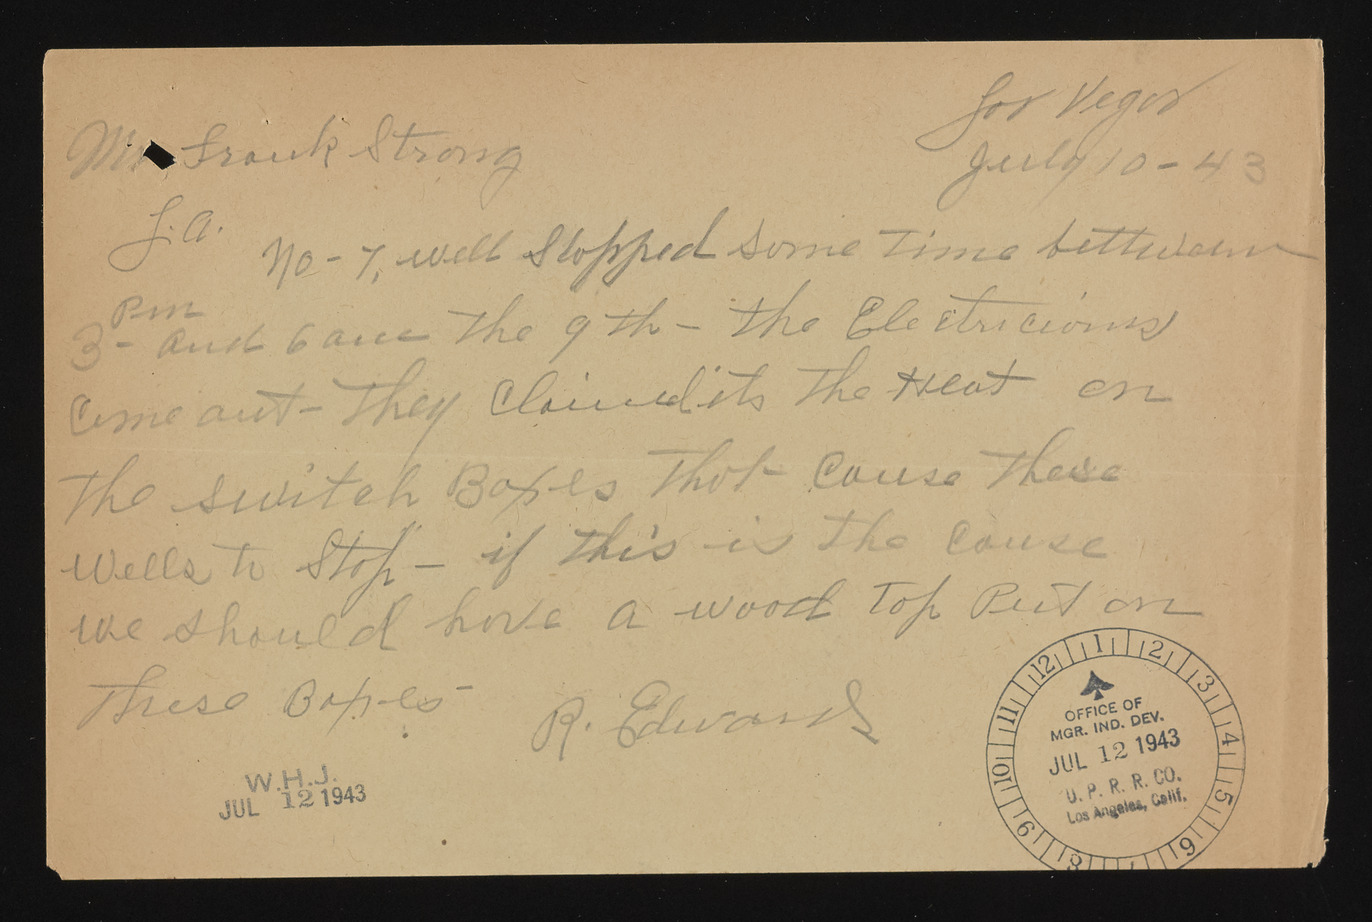 Las Vegas
July 10 - 43
Mr Frank Strong
L.A.
No - 7, well Stopped some time bettween
3 Pm - and 6 am The 9 th - the Electricians
Come out - They Claimed its The Heat on
the switch Boxes That Cause these
wells to Stop - if this is the Cause
we should have a wood Top Put on
These Boxes -
R. Edwards
W.H.J.
JUL 12 1943
12 1 2 3 4 5 6 7 8 9 10 11
OFFICE OF
MGR. IND. DEV.
JUL 12 1943
U. P. R. R. CO.
Los Angeles, Calif.